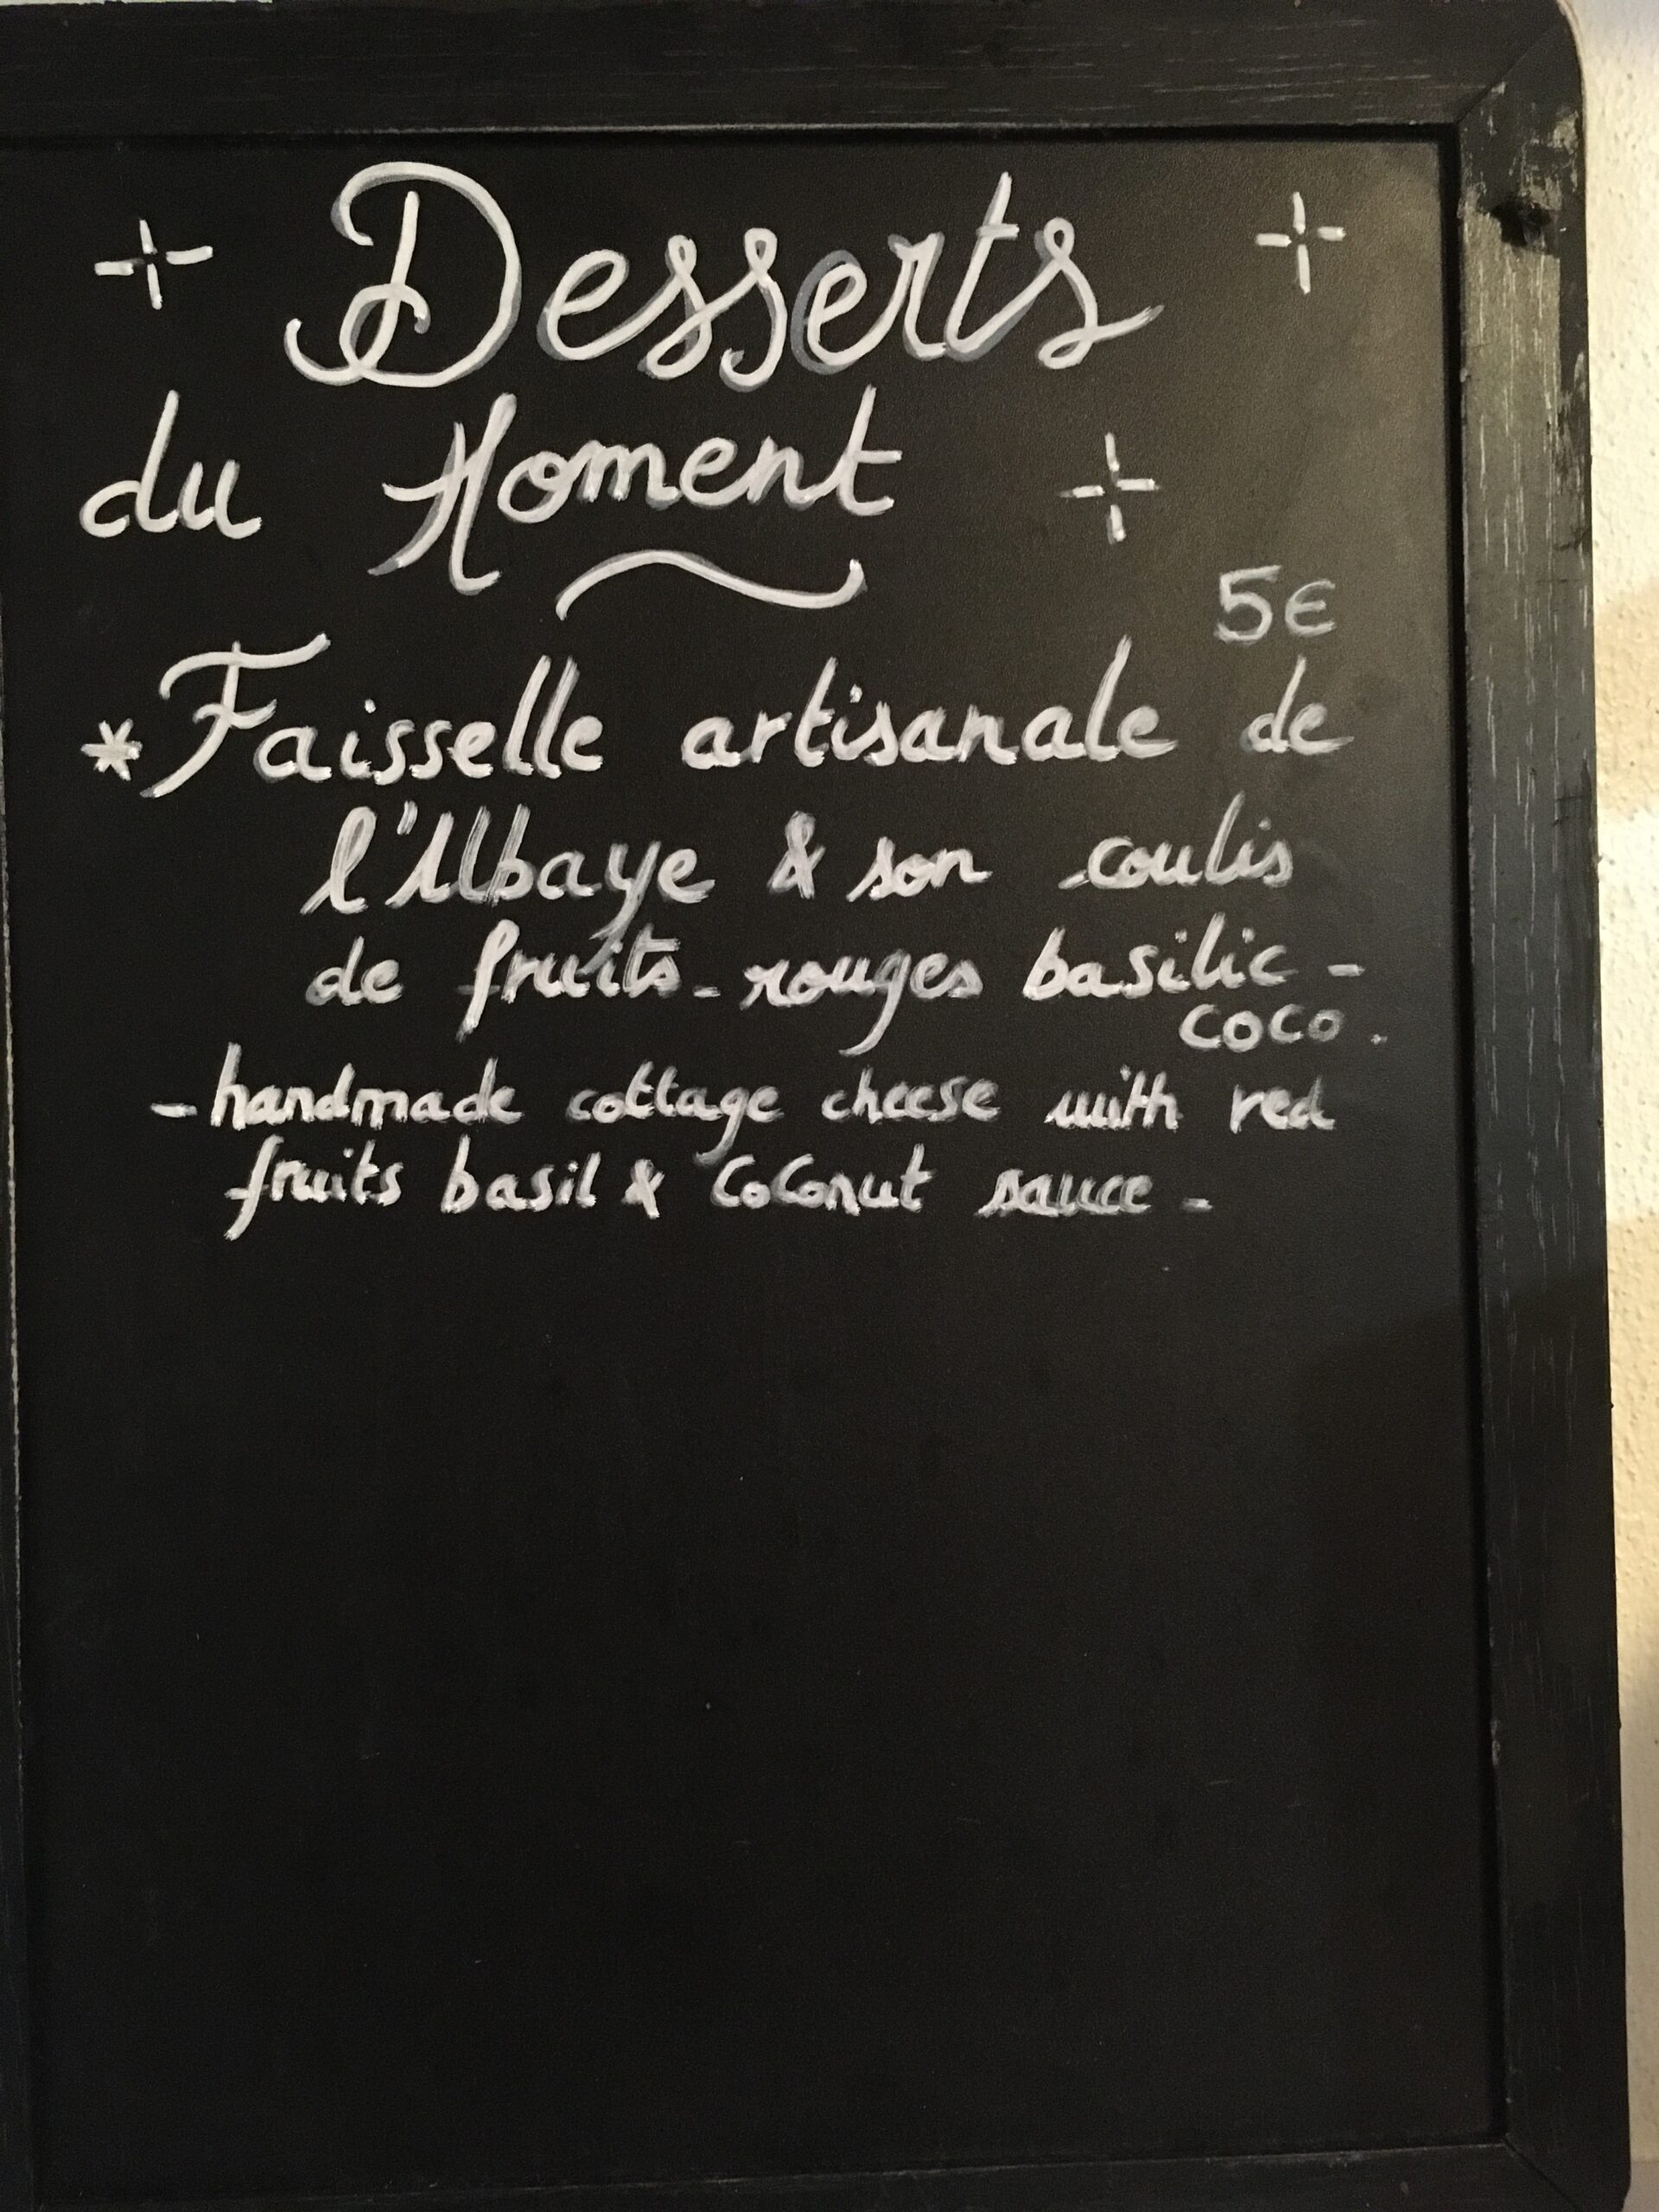 Desserts
du Moment
5€
*Faisselle artisanale de
l'Abbaye & son coulis
de fruits-rouges basilic -
coco.
- handmade cottage cheese with red
fruits basil & Coconut sauce -